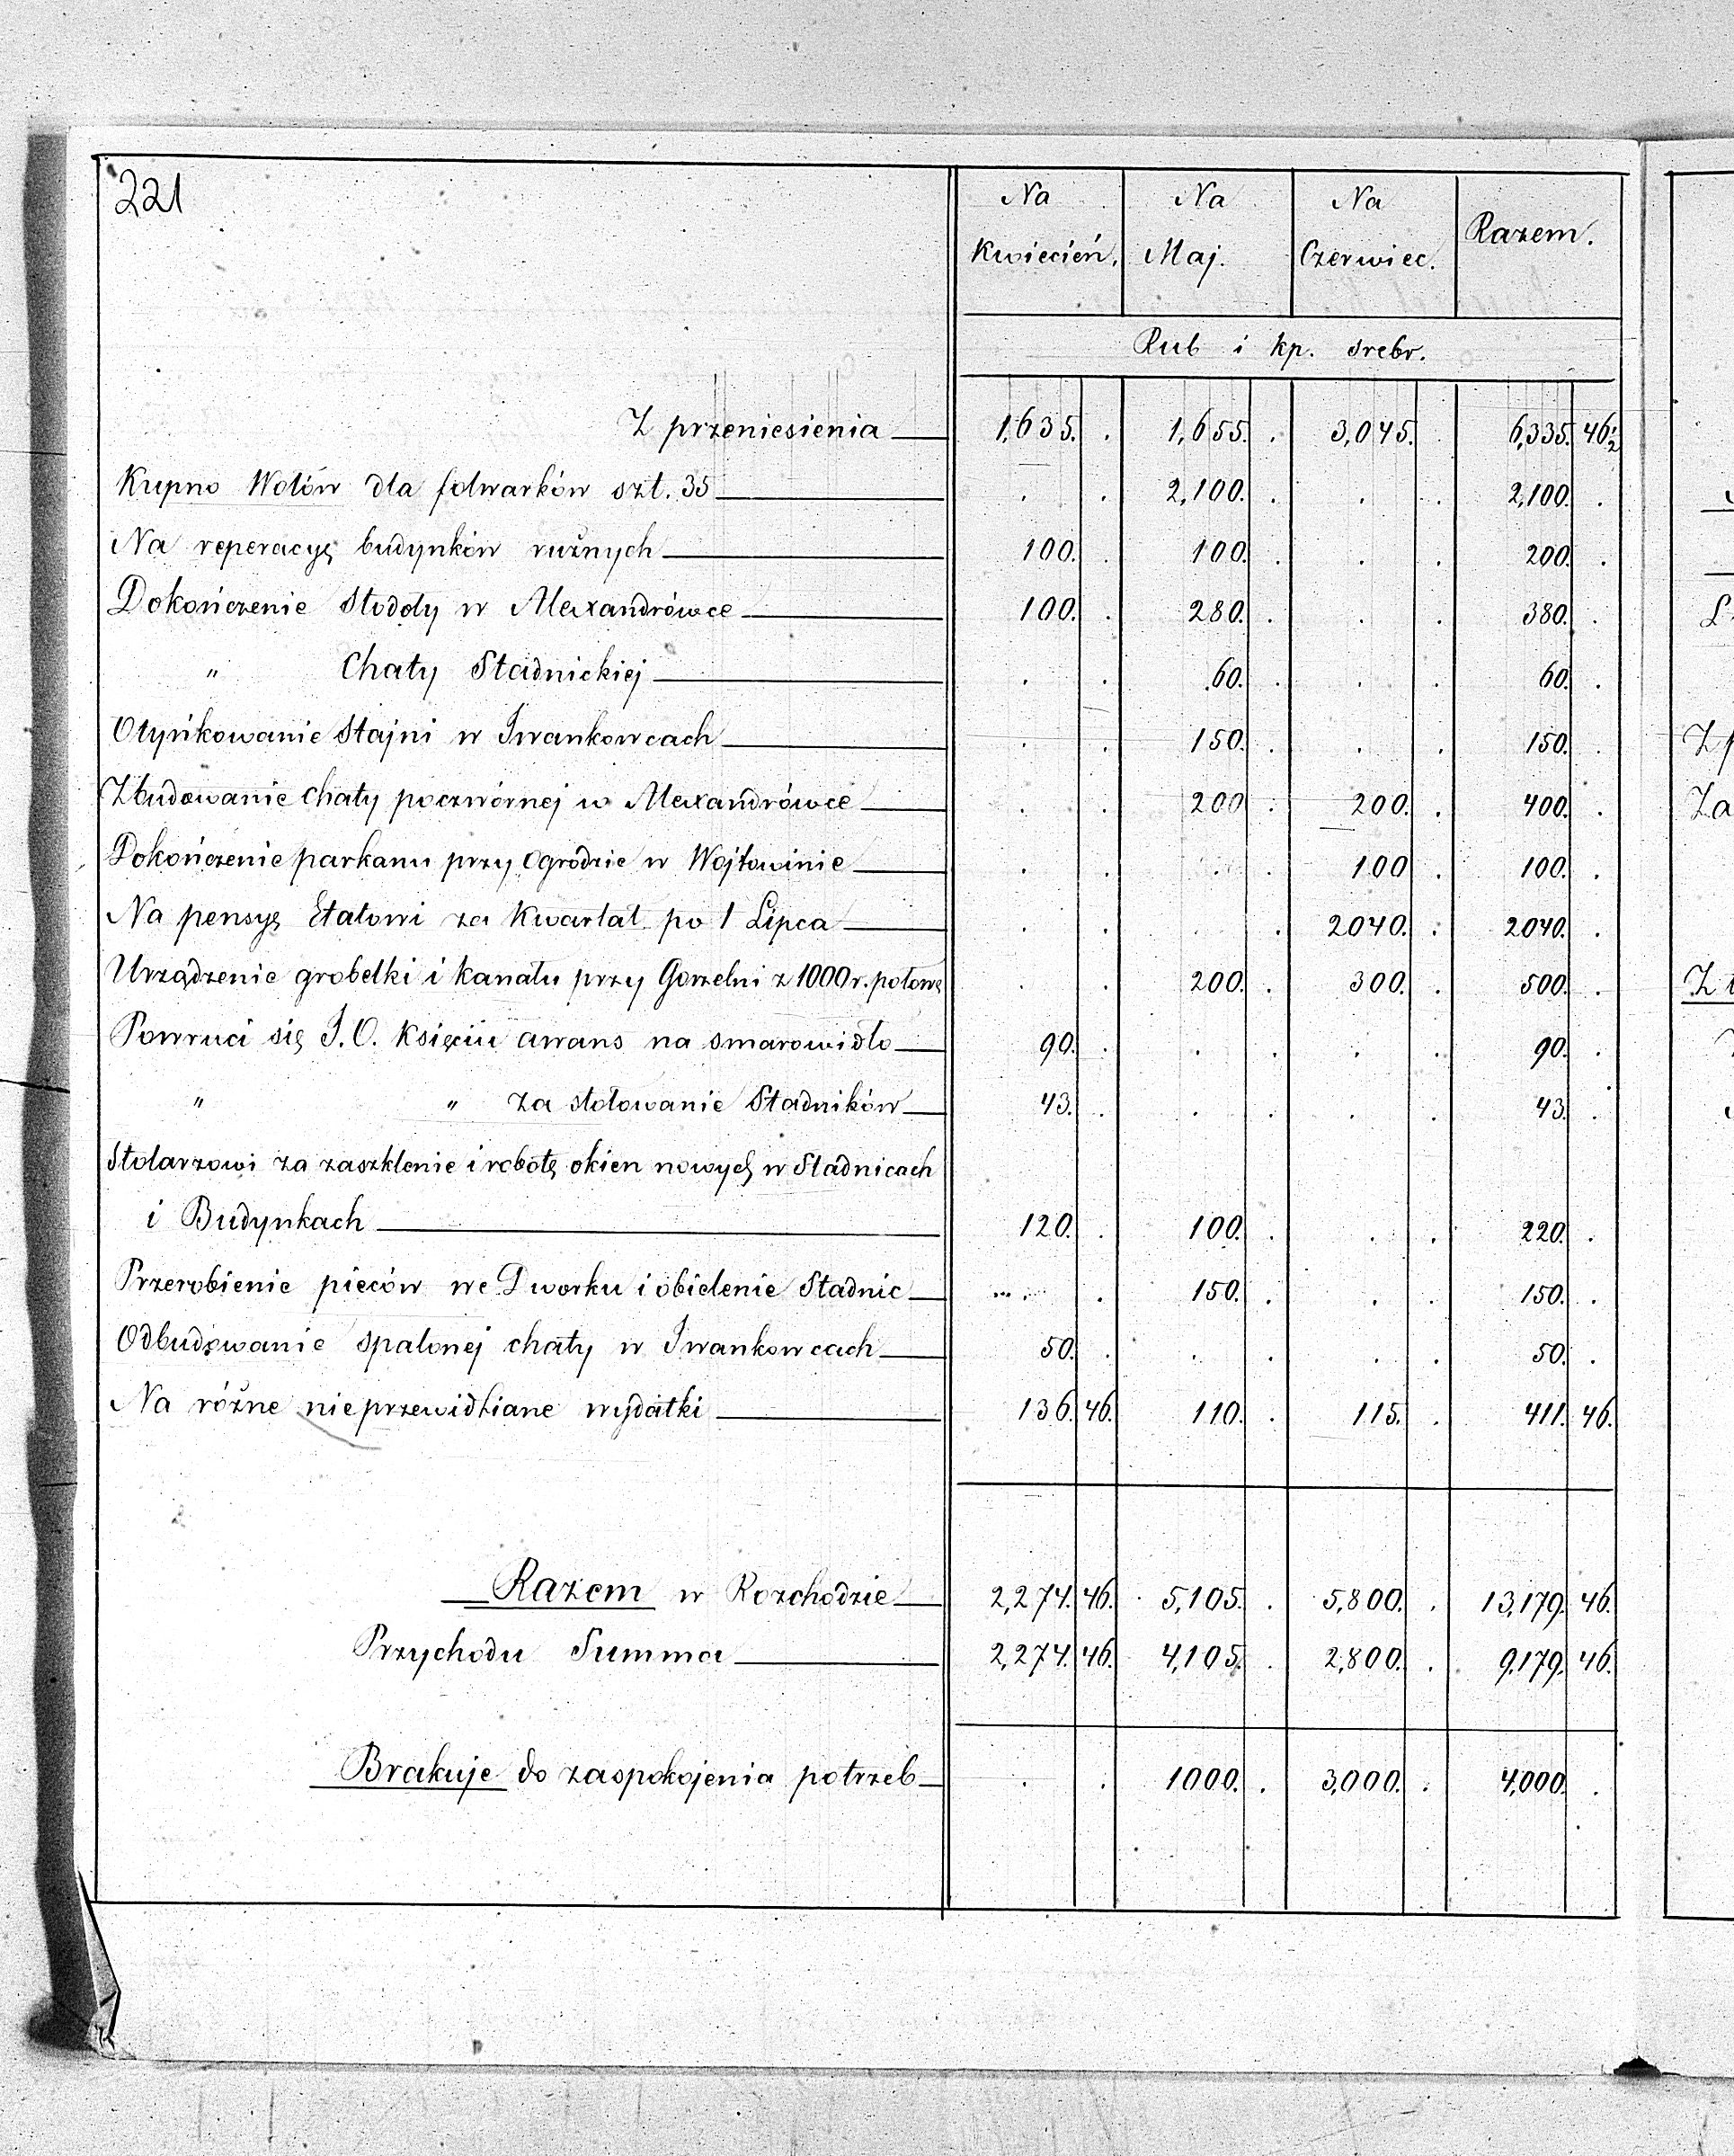 221
Na Kwiecień. Na Maj. Na Czerwiec. Razem.
Rub i kp. srebr.
Z przeniesienia 1,635. . 1,655. . 3,045. . 6,335. 46½
Kupno Wołów dla folwarków szt. 35 . . 2,100. . . . 2,100. .
Na reperacyę budynków rużnych 100. . 100. . . . 200. .
Dokończenie Stodoły w Alexandrówce 100. . 280. . . . 380. .
" Chaty Stadnickiej . . 60. . . . 60. .
Otynkowanie Stajni w Iwankowcach . . 150. . . . 150. .
Zbudowanie chaty poczwórnej w Alexandrówce . . 200 . 200. . 400. .
Dokończenie parkanu przy ogrodzie w Wojtowinie . . . . 100 . 100. .
Na pensyę Etatowi za Kwartał po 1 Lipca . . . . 2040. . 2040. .
Urządzenie grobelki i kanału przy Gorzelni z 1000 r. połowę . . 200. . 300. . 500. .
Powruci się J. O. Księciu awans na smarowidło 90. . . . . . 90. .
" " za stołowanie Stadników 43. . . . . . 43. .
Stolarzowi za zaszklenie i robotę okien nowych w Stadnicach
i Budynkach 120. . 100. . . . 220. .
Przerobienie pieców we Dworku i obielenie Stadnic . . 150. . . . 150. .
Odbudowanie spalonej chaty w Iwankowcach 50. . . . . . 50. .
Na różne nieprzewidziane wydatki 136. 46. 110. . 115. . 411. 46.
Razem w Rozchodzie 2,274. 46. 5,105. . 5,800. . 13,179. 46.
Przychodu Summa 2,274. 46. 4,105. . 2,800. . 9,179. 46.
Brakuje do zaspokojenia potrzeb . . 1000. . 3,000. . 4,000. .